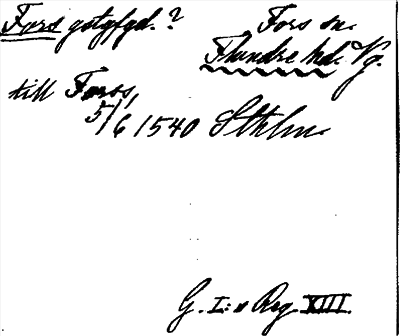 Fors gstgfgd.?
Fors sn.
Flundre hd. Vg.
till Forss,
5/6 1540 Sthlm.
G. I:s Reg. XIII.